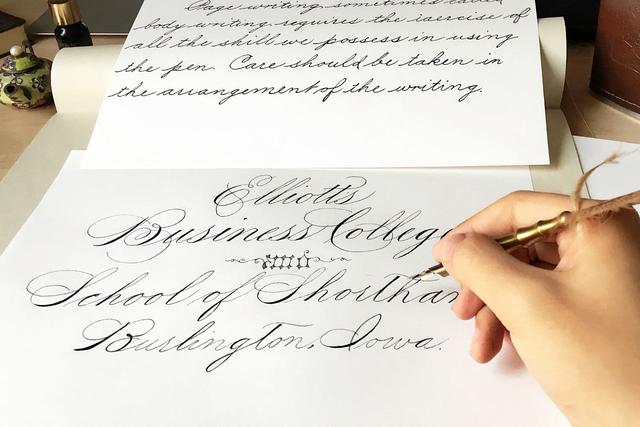 Page writing, sometimes called
body writing requires the exercise of
all the skill we possess in using
the pen. Care should be taken in
the arrangement of the writing.
Elliotts
Business College
and
School of Shorthan
Burlington, Iowa.